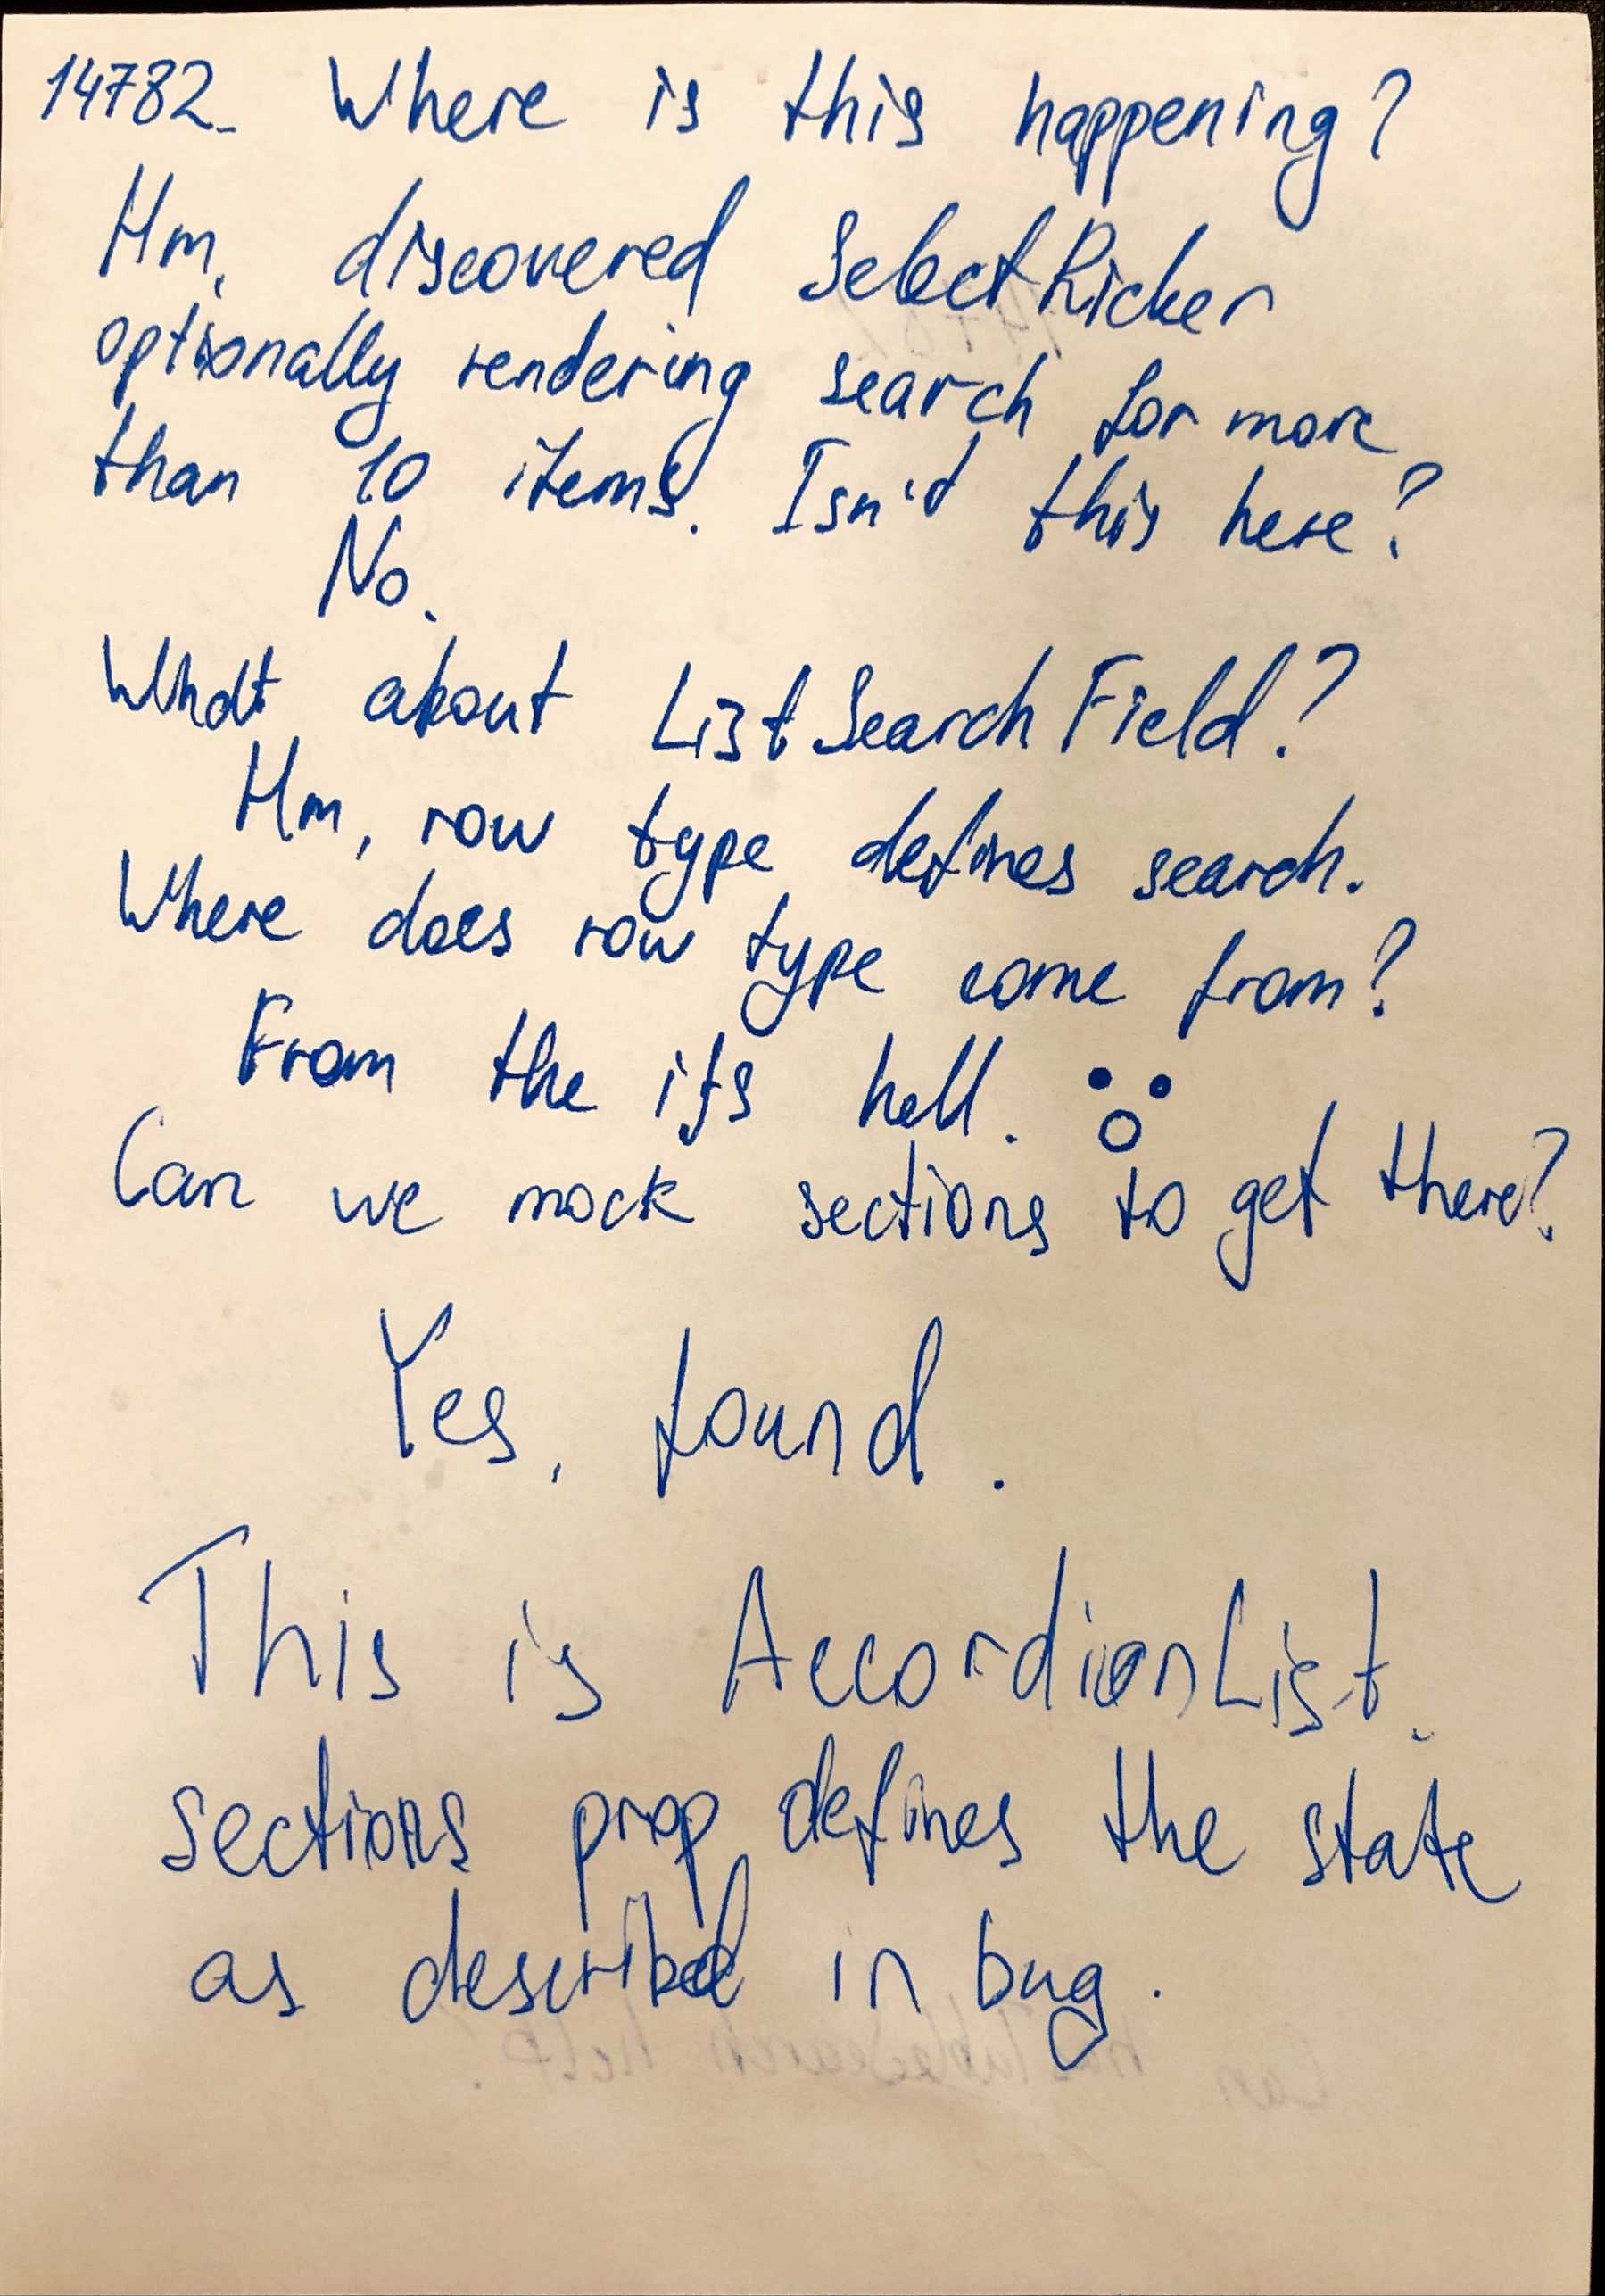 14782. Where is this happening?
Hm, discovered SelectPicker
optionally rendering search for more
than 10 items. Isn't this here?
No.
What about ListSearchField?
Hm, row type defines search.
Where does row type come from?
From the ifs hell.
Can we mock sections to get there?
Yes, found.
This is AccordionList.
sections prop defines the state
as described in bug.
Can TableSearch help?